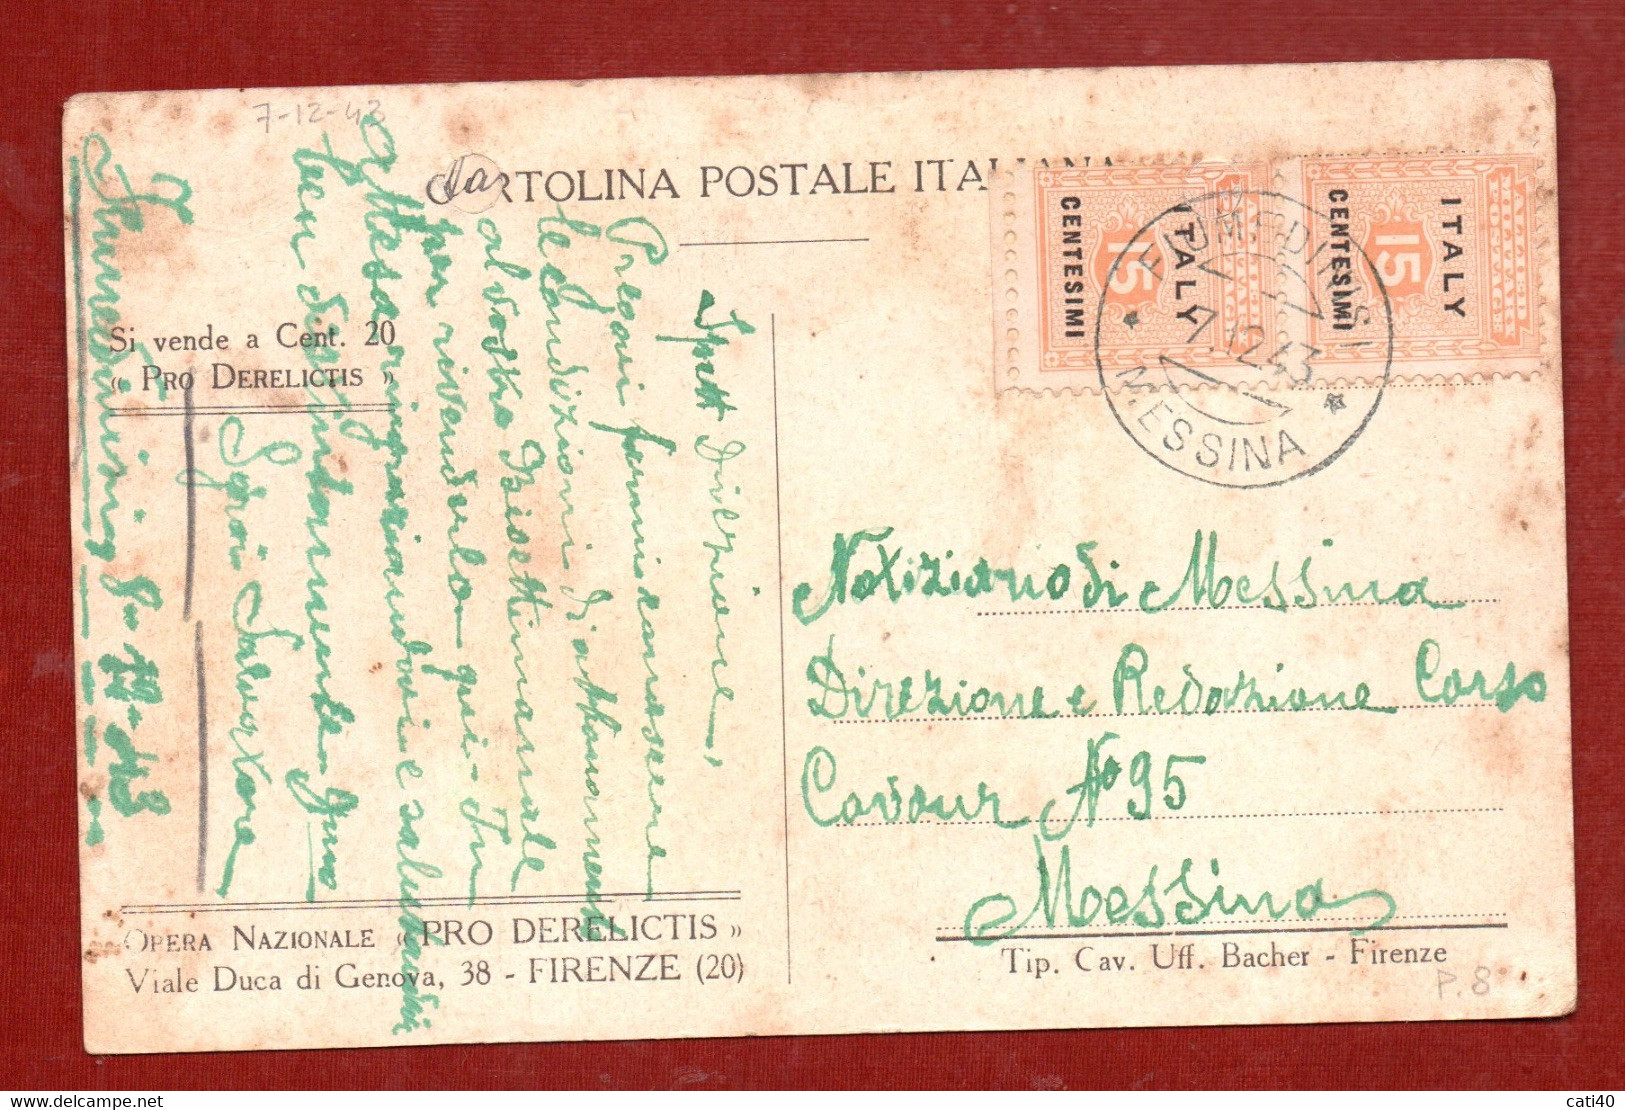 7-12-43
CARTOLINA POSTALE ITALIANA
ITALY
15
CENTESIMI
ITALY
15
CENTESIMI
FIUMEDINISI
7.12.43
MESSINA
Si vende a Cent. 20
« PRO DERELICTIS »
Spett Direzione,
Pregovi farmi conoscere
le condizioni di abbonamento
al vostro Bisettimanale
per rivenderlo qui. In
attesa ringraziandovi e salutandovi
ben distintamente
Sgroi Salvatore
Fiumedinisi
Notiziario di Messina
Direzione e Redazione Corso
Cavour No 95
Messina
OPERA NAZIONALE « PRO DERELICTIS »
Viale Duca di Genova, 38 - FIRENZE (20)
Tip. Cav. Uff. Bacher - Firenze
P. 8
cati40